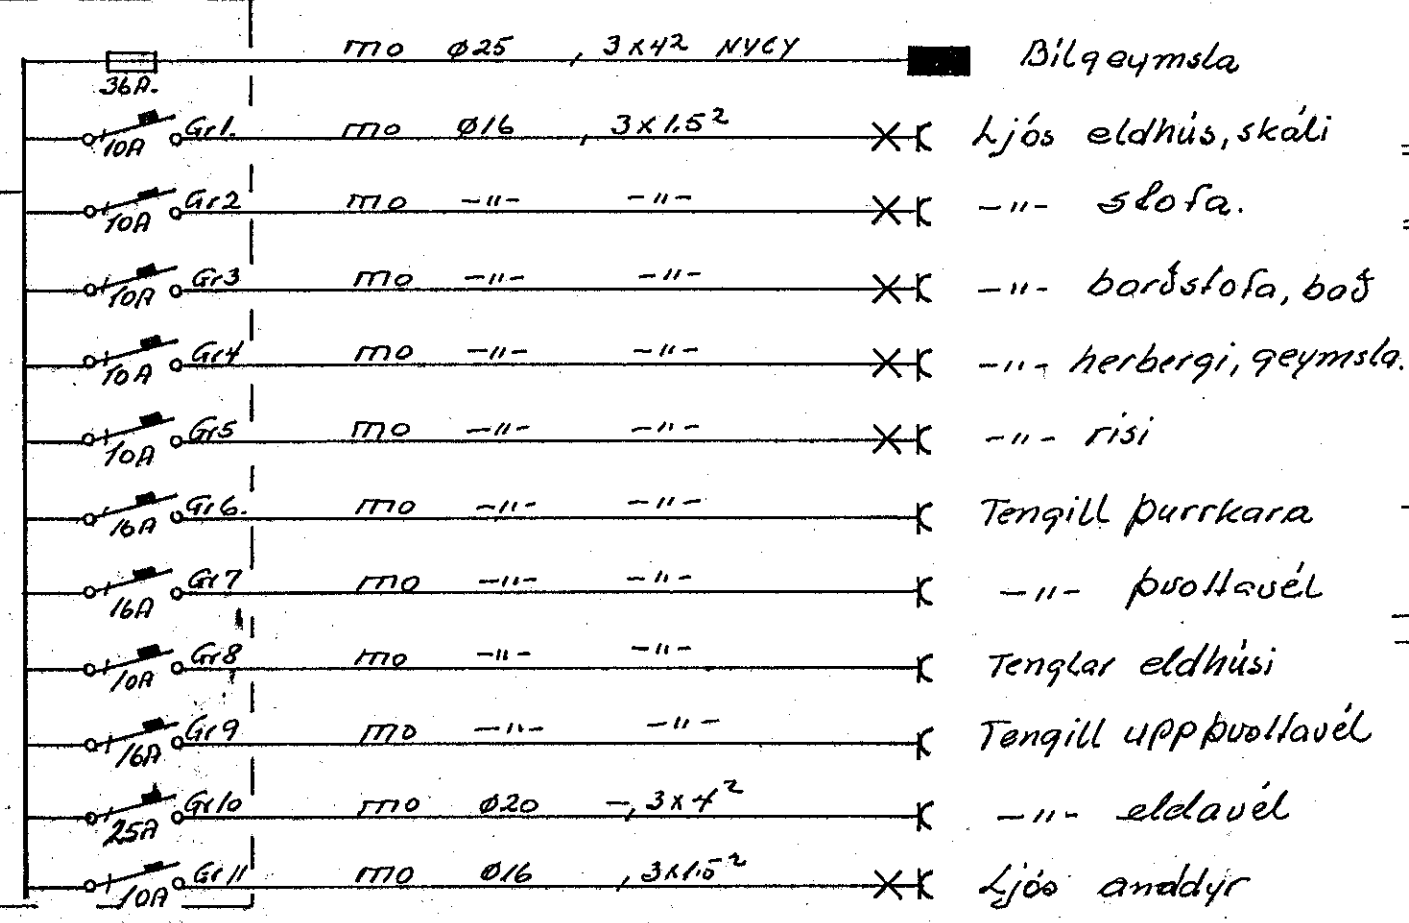 mo ø25 , 3x4² NYCY Bílgeymsla
36A.
Gr1. mo ø16 , 3x1.5² Ljós eldhús, skáli
10A
Gr2 mo -"- -"- -"- stofa.
10A
Gr3 mo -"- -"- -"- barðstofa, bað
10A
Gr4 mo -"- -"- -"- herbergi, geymsla.
10A
Gr5 mo -"- -"- -"- risi
10A
Gr6. mo -"- -"- Tengill þurrkara
16A
Gr7 mo -"- -"- -"- þvottavél
16A
Gr8 mo -"- -"- Tenglar eldhúsi
10A
Gr9 mo -"- -"- Tengill uppþvottavél
16A
Gr10 mo ø20 -, 3x4² -"- eldavél
25A
Gr11 mo ø16 , 3x1.5² Ljós anddyr
10A